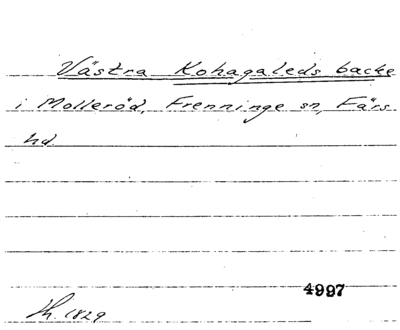 Västra Kohagaleds backe
i Molleröd, Frenninge sn, Färs
hd
4997
Th. 1829